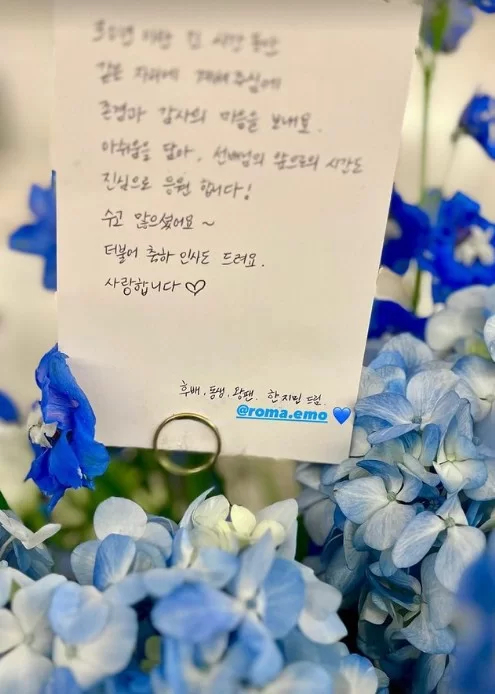 이란 긴 시간 동안
같은 자리에 계셔 주심에
존경과 감사의 마음을 보내요.
아쉬움을 담아, 선배님의 앞으로의 시간도
진심으로 응원 합니다!
수고 많으셨어요 ~
더불어 축하 인사도 드려요.
사랑합니다 ♡
후배, 동생, 왕팬. 한지민 드림.
@roma.emo 💙